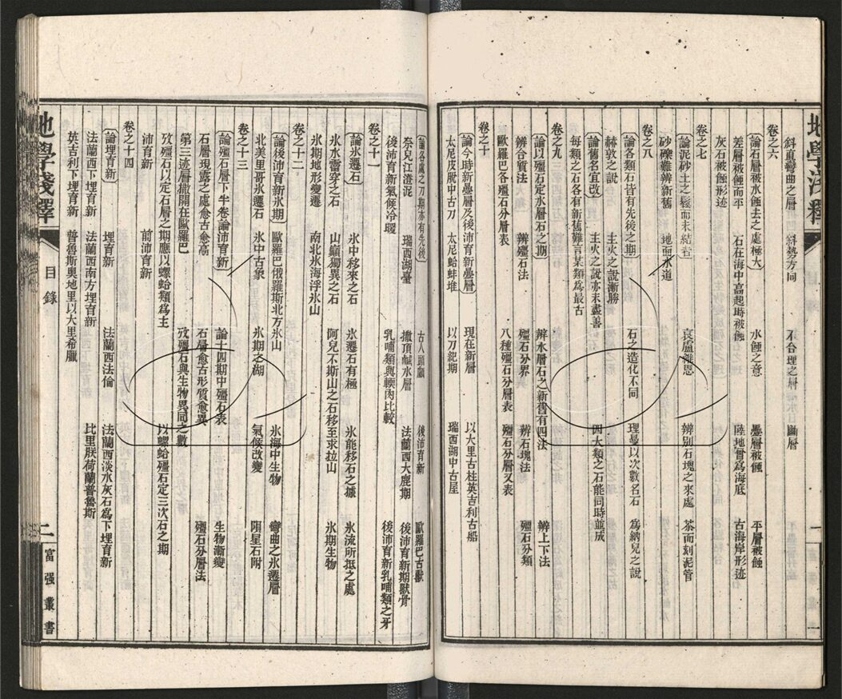 地學淺釋
斜直彎曲之層 斜勢方向 不合理之層 斷層
卷之六
論石層被水蝕去之處極大 水蝕之意 疊層被蝕 平層被蝕
差層被蝕而平 石在海中高起時被蝕 陸地嘗爲海底 古海岸形迹
灰石被蝕形迹
卷之七
論泥砂土之鬆而未結者 哀盧維恩 辨別石塊之來處 茶而刻泥管
砂礫難辨新舊 地面水道
卷之八
論各類石皆有先後之期 石之造化不同 理曼以次數名石 爲納兒之說
赫敦之說 主火之說漸勝
論舊名宜改 主火之說亦未盡善 四大類之石能同時並成
每類之石各有新舊難言某類爲最古
卷之九
論以殭石定水層石之期 辨水層石之新舊有四法 辨上下法
辨合質法 辨殭石法 殭石分界 辨石塊法 殭石分類
歐羅巴各殭石分層表 八種殭石分層表 殭石分層又表
卷之十
論今時新疊層及後沛育新疊層 現在新層 以大里古柱英吉利古船
太尼皮厥中古刀 太尼蛤蚌堆 以刀紀期 瑞西湖中古屋
論各處之刀期亦有先後 古人頭顱 後沛育新 歐羅巴古獸
奈兒江漲泥 瑞西湖臺 撒頂鹹水層 法蘭西大鹿期 後沛育新期獸骨
後沛育新氣候冷暖 乳哺類與輭肉比較 後沛育新乳哺類之牙
卷之十一
論氷遷石 氷中移來之石 氷遷石有極 氷能移石之據 氷流所抵之處
氷水雷穿之石 山巔獨異之石 阿兒不斯山之石移至求拉山
氷期地形變遷 南北氷海浮氷山 氷期生物
卷之十二
論後沛育新氷期 歐羅巴俄羅斯北方氷山 氷海中生物 彎曲之氷遷層
北美里哥氷遷石 氷中古象 氷期之湖 氣候改變 隕星石附
卷之十三
論殭石層下半卷論沛育新 論十四期中殭石表 生物漸變
石層現露之處愈古愈高 石層愈古形質愈異 殭石分層法
第三迹層散開在歐羅巴 攷殭石與生物異同之數
攷殭石以定石層之期應以螺蛤類爲主 以螺蛤殭石定三次石之期
沛育新 前沛育新
卷之十四
論埋育新 埋育新 法蘭西法倫 法蘭西淡水灰石爲下埋育新
法蘭西下埋育新 法蘭西南方埋育新 比里朕荷蘭普魯斯
英吉利下埋育新 普魯斯奧地里以大里希臘
地學淺釋 目錄 二 富强叢書